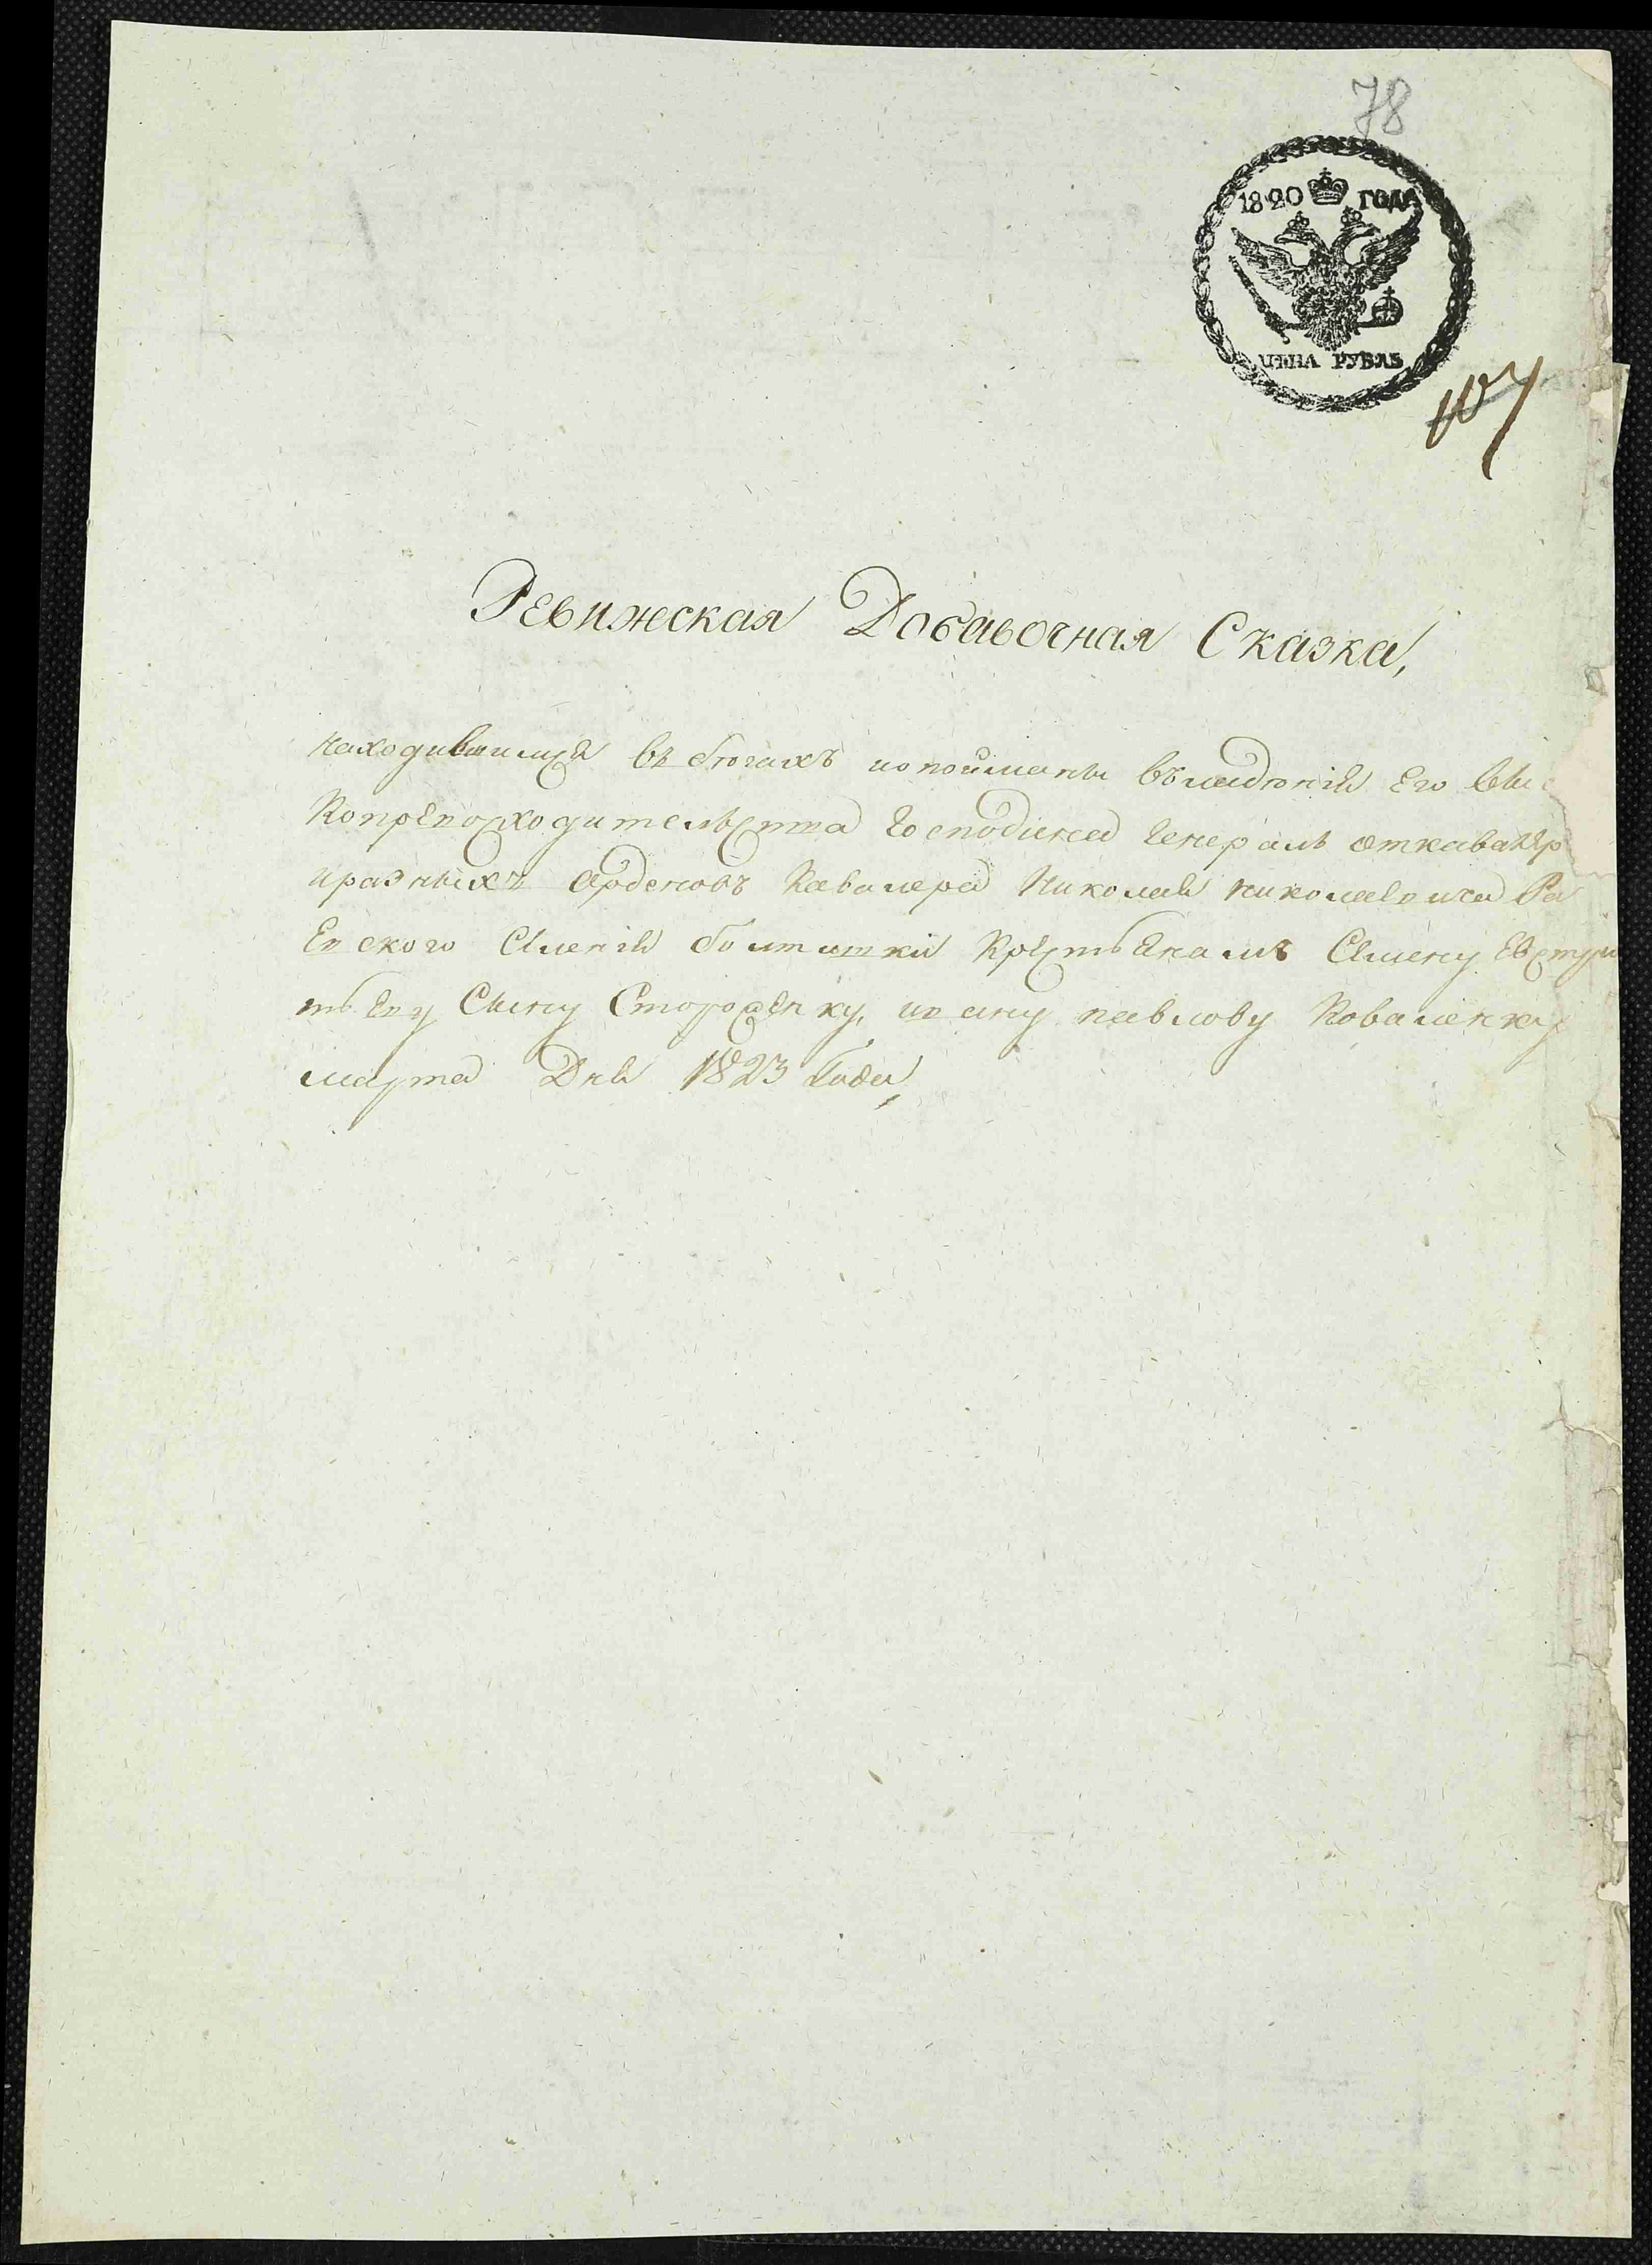 78
1820 ГОДА
ЦѢНА РУБЛЬ
107
Ревижская Добавочная Сказка,
находившимся въ бѣгахъ ипойманы въ имѣнія Его Выс
Копревосходительства Господина Генерала откавалер
иразныхъ Орденовъ Кавалера Николая николаевича Ра
Евского Именія болтишки Крестьянамъ Семену Евстух
Сыну Стороженку, ивану павлову Коваленку
марта Дня 1823 Года,